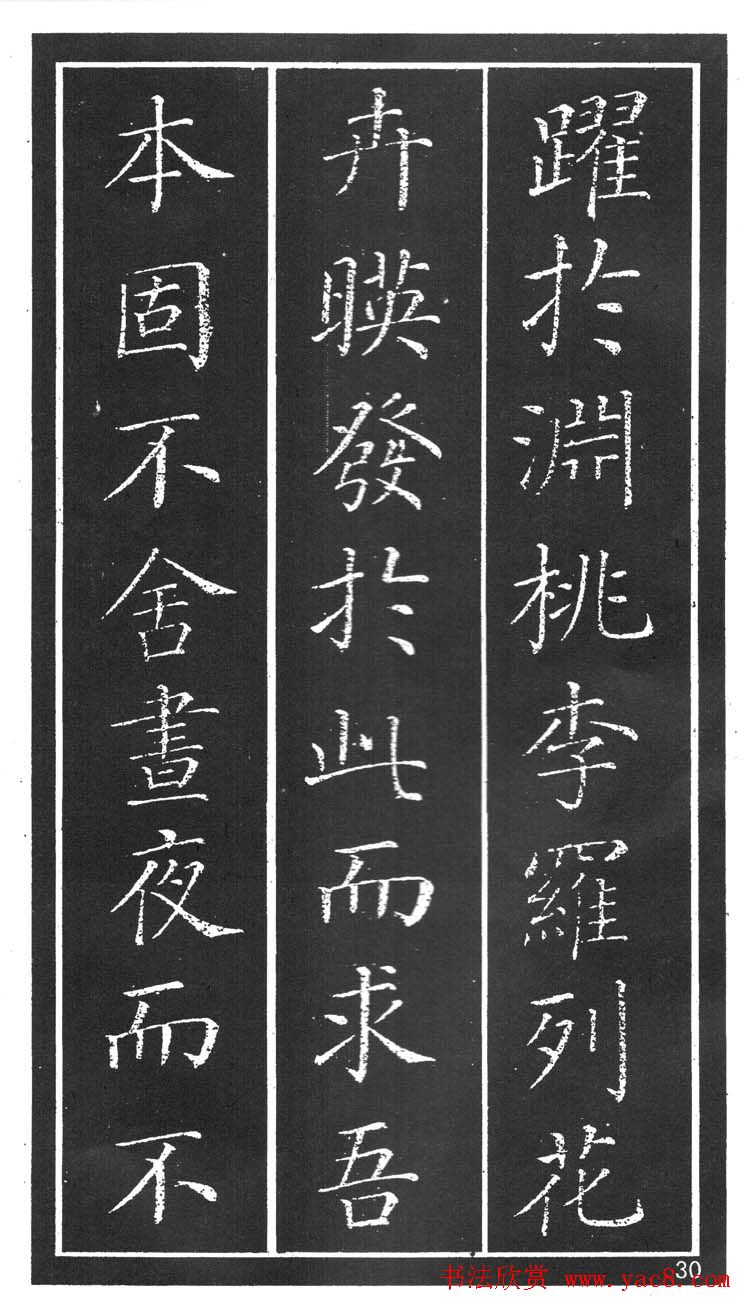 躍於淵桃李羅列花
卉暎發於此而求吾
本固不舍晝夜而不
30
书法欣赏 www.yac8.com